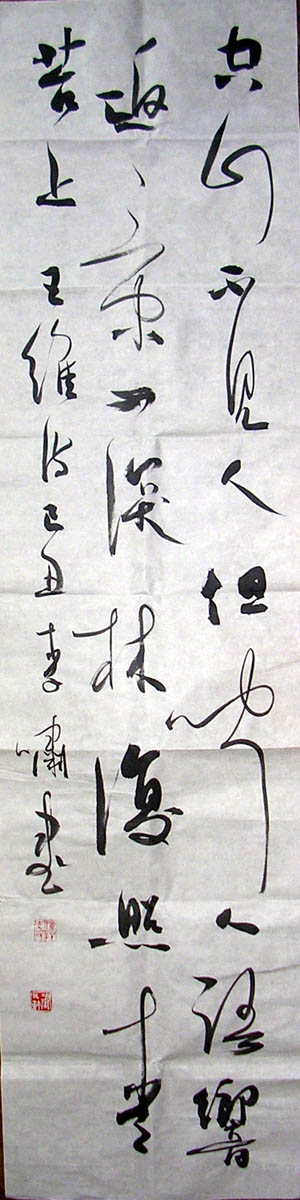 空山不見人但聞人語響
返景入深林復照青
苔上 王維詩 己丑 李嘯書